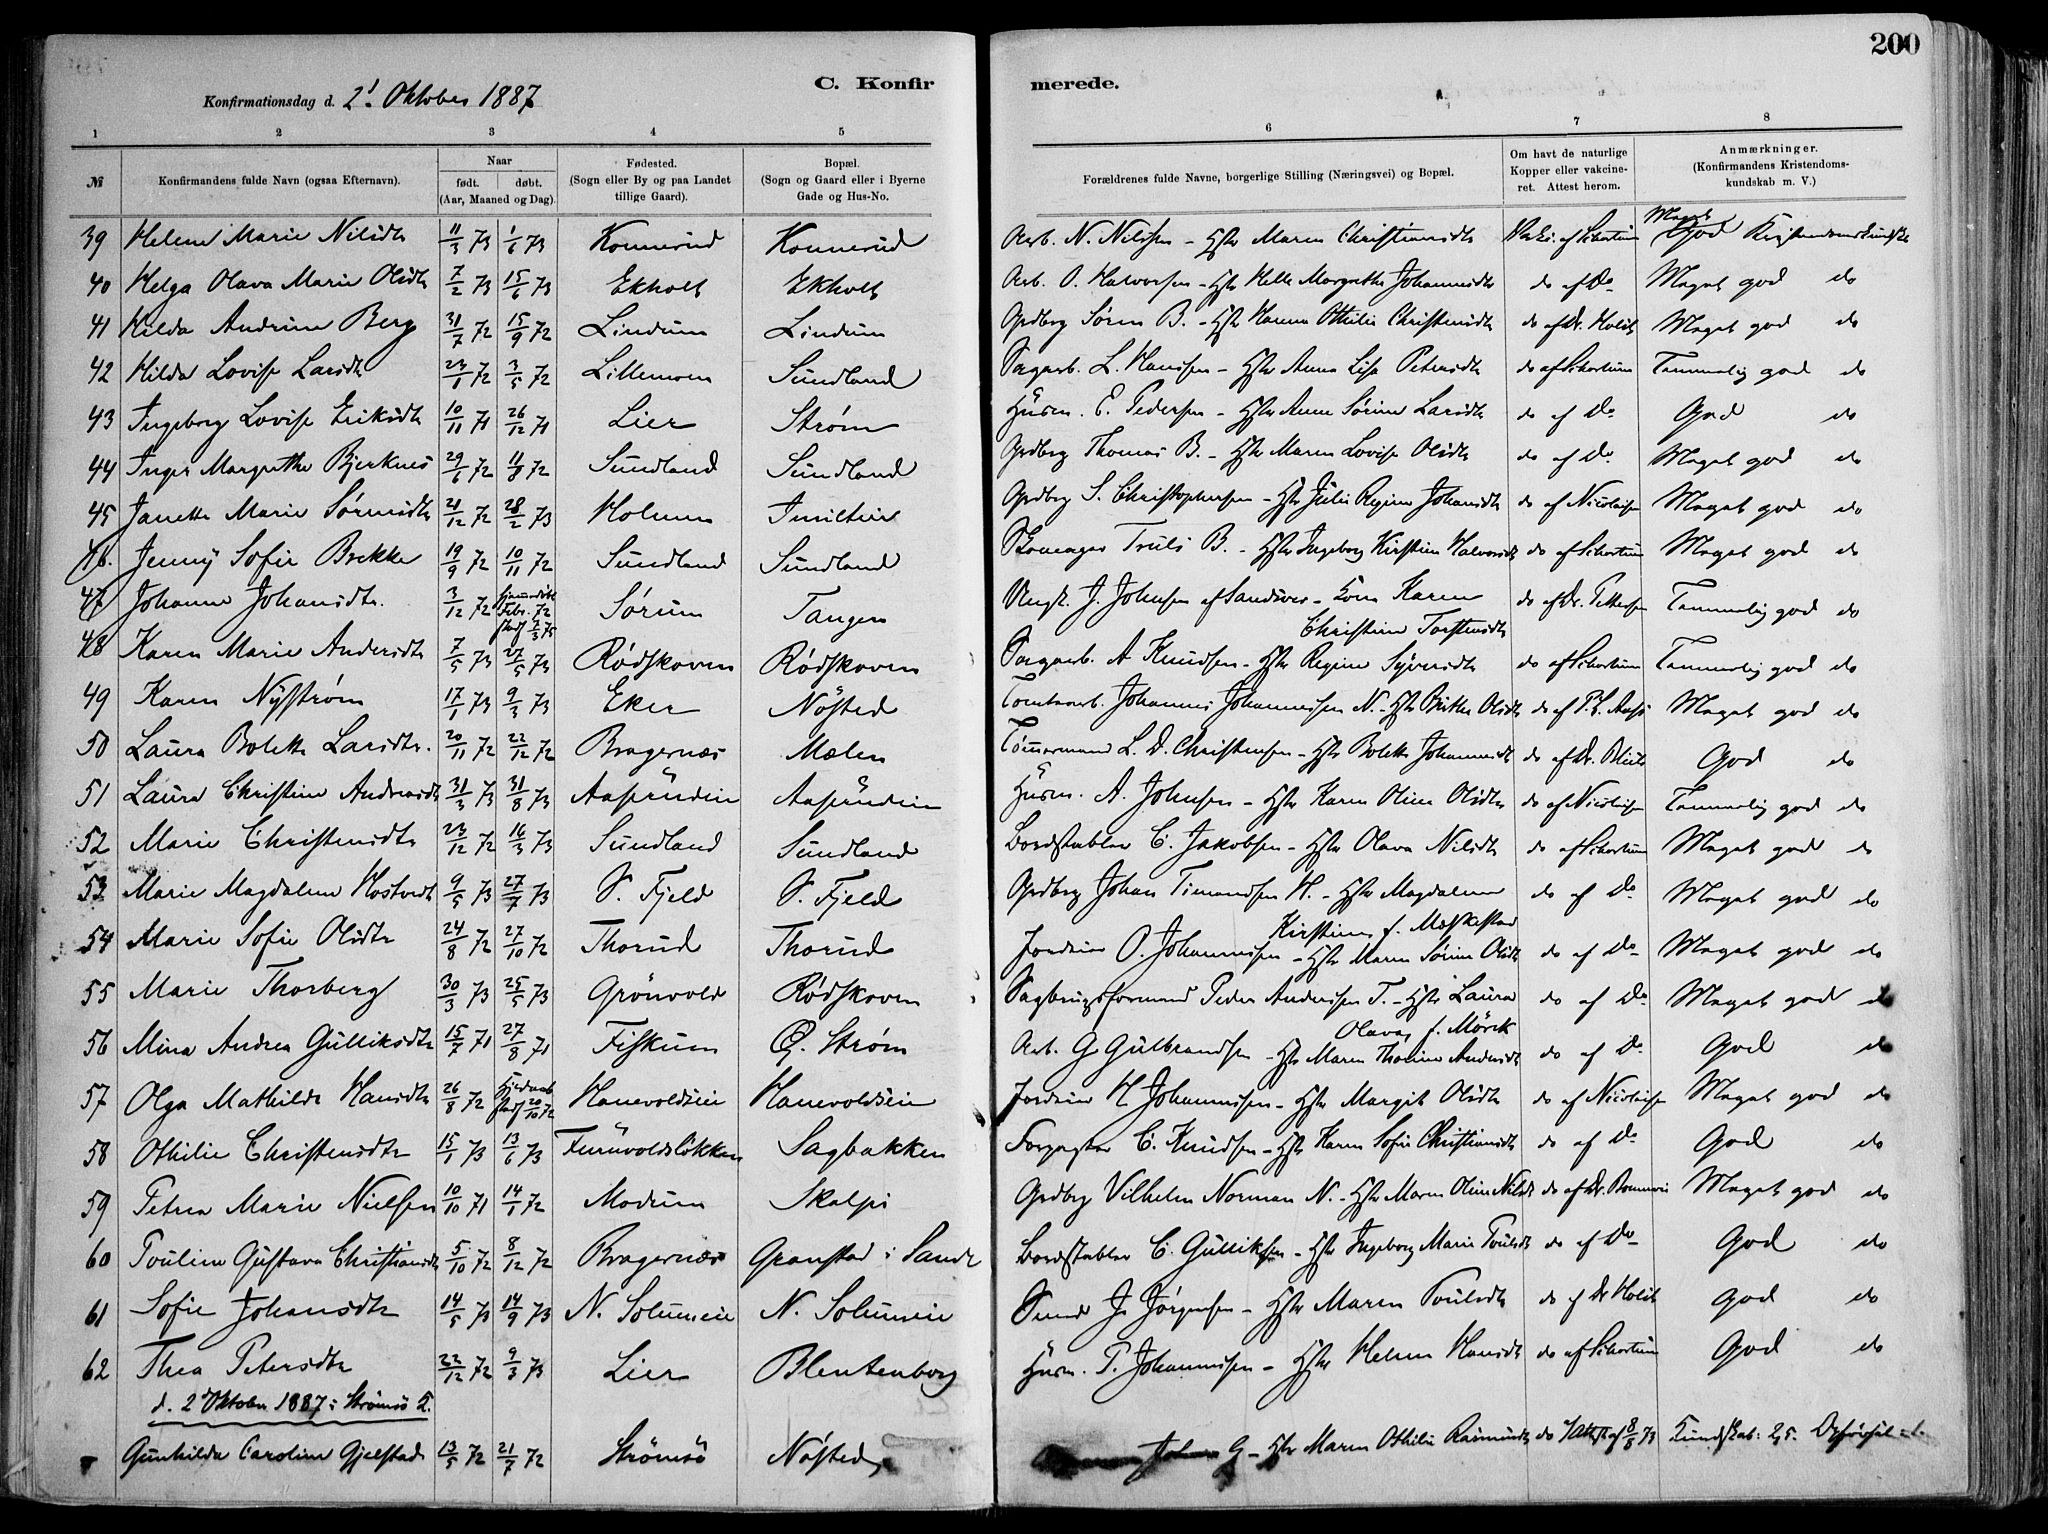 200
Konfirmationsdag d. 2' Oktober 1887
C. Konfirmerede.
1 2 3 4 5 6 7 8
№ Konfirmandens fulde Navn (ogsaa Efternavn). Naar født. døbt. (Aar, Maaned og Dag). Fødested. (Sogn eller By og paa Landet tillige Gaard). Bopæl. (Sogn og Gaard eller i Byerne Gade og Hus-No. Forældrenes fulde Navne, borgerlige Stilling (Næringsvei) og Bopæl. Om havt de naturlige Kopper eller vakcineret. Attest herom. Anmærkninger. (Konfirmandens Kristendomskundskab m. V.)
39 Helene Marie Nilsdtr 11/3 73 1/6 73 Konnerud Konnerud Arb. N. Nilssen - Hstr Maren Christiansdtr Vakc. af Schortum Meget God Kristendomskundsk
40 Helga Olava Marie Olsdtr 7/2 73 15/6 73 Ekholt Ekholt Arb. O. Halvorsen - Hstr Helle Margrethe Johannesdtr do af Do Meget god do
41 Hilda Andrine Berg 31/7 72 15/9 72 Lindum Lindum Grdbrg Sören B. - Hstr Karen Othilie Christensdtr do af Dr. Holst Meget god do
42 Hilda Lovise Larsdtr 23/1 72 3/5 72 Lillemoen Sundland Sagarb. L. Hanssen - Hstr Anna Lise Petersdtr do af Schortum Temmelig god do
43 Ingeborg Lovise Eriksdtr 10/11 71 26/12 71 Lier Strøm Husm. E. Pedersen - Hstr Anne Sörine Larsdtr do af Do God do
44 Inger Margrethe Bjerknes 29/6 72 11/8 72 Sundland Sundland Grdbrg Thomas B. - Hstr Maren Lovise Olsdtr do af Do Meget god do
45 Janette Marie Sörensdtr 21/12 72 28/2 73 Holmen Grdbrg S. Christophersen - Hstr Julie Regine Johansdtr do af Nicolaisen Meget god do
46. Jenny Sofie Brekke 19/9 72 10/11 72 Sundland Sundland Skomager Truls B. - Hstr Ingeborg Kirstine Halvorsdtr do af Schortum Meget god do
47 Johanne Johansdtr. 3/12 72 hjemmedöbt Febr. 72 stadf 2/3 75 Sørum Tangen Ungk. J. Johnsen af Sandsvær - Kone Karen Christine Torstensdtr do af Dr. Pettersen Temmelig god do
48 Karen Marie Andersdtr 7/5 73 27/5 73 Rødskoven Rødskoven Sagarb. A Knudsen - Hstr Regine Syversdtr do af Schortum Temmelig god do
49 Karen Nyström 17/1 73 9/3 73 Eker Nösted Tomtearb. Johannes Johannessen N. - Hstr Birthe Olsdtr do af P. L. Aass Meget god do
50 Laura Bolette Larsdtr. 20/11 72 22/12 72 Bragernæs Mælen Tömmermand L. D. Christensen - Hstr Bolette Johannesdt do af Dr. God do
51 Laura Christine Andreasdt 31/3 73 31/8 73 Aaserudeie Aaserudeie Husm. A. Johnsen - Hstr Karen Oline Olsdtr do af Nicolaisen Temmelig god do
52 Marie Christensdtr 23/12 72 16/3 73 Sundland Sundland Bordstabler C. Jakobsen - Hstr Olava Nilsdtr do af Schortum Meget god do
53 Marie Magdalene Hostvedt 9/5 73 27/7 73 S. Fjeld S. Fjeld Grdbrg Johan Timandsen H. - Hstr Magdalene Kirstine, f. Mæskestad do af Do Meget god do
54 Marie Sofie Olsdtr 24/8 72 27/10 72 Thorud Thorud Jordeier O. Johannessen - Hstr Maren Sörine Olsdt do af Do Meget god do
55 Marie Thorberg 30/3 73 25/5 73 Grönvold Rødskoven Sagbrugsformand Peder Andersen T. - Hstr Laura Olava, f. Mörck do af Do Meget god do
56 Mina Andrea Gulliksdtr 15/7 71 27/8 71 Fiskum Ö. Strøm Arb. G Gulbrandsen - Hstr Maren Thorine Andersdt do af Do God do
57 Olga Mathilde Hansdtr 26/8 72 Hjemdøbt stadf 20/10 72 Hanevoldseie Hanevoldseie Jordeier H Johannessen - Hstr Margit Olsdtr do af Nicolaisen Meget god do
58 Othilie Christensdtr 15/1 73 13/6 73 Furuvoldslökken Sagbakken Forpagter C. Knudsen - Hstr Karen Sofie Christiansdt do af Do God do
59 Petrea Marie Nielsen 10/10 71 14/1 72 Modum Skalpi Grdbrg Vilhelm Norman N. - Hstr Maren Oline Nilsdt do af Dr. Meget god do
60 Pouline Gustava Christiansdt 5/10 72 8/12 72 Bragernæs Granstad i Sande Bordstabler C. Gulliksen - Hstr Ingeborg Marie Poulsdt do af Do God do
61 Sofie Johansdtr 14/5 73 14/9 73 N. Solumeie N. Solumeie Smed J. Jörgensen - Hstr Maren Poulsdtr do af Dr Holst god do
62 Thea Petersdtr 22/12 72 9/3 73 Lier Blentenborg Husm. P. Johannessen - Hstr Helene Hansdt do af Schortum God do
d. 2' Oktober 1887 i Strömsö K.
Gunhilda Caroline Gjelstad 13/5 72 21/7 72 Strömsö Nösted Johan G - Hstr Maren Othilie Rasmusdt do Attest af 8/8 73 Kundskab: 2,5.